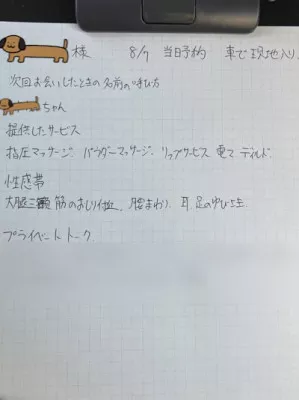 様 8/7 当日予約 車で現地入り、
次回お会いしたときの名前の呼び方
ちゃん
提供したサービス
指圧マッサージ、パウダーマッサージ、リップサービス 電マ、ディルド、
性感帯
大腿三頭筋のおしり付近、腰まわり 耳、足のゆび5本
プライベートトーク